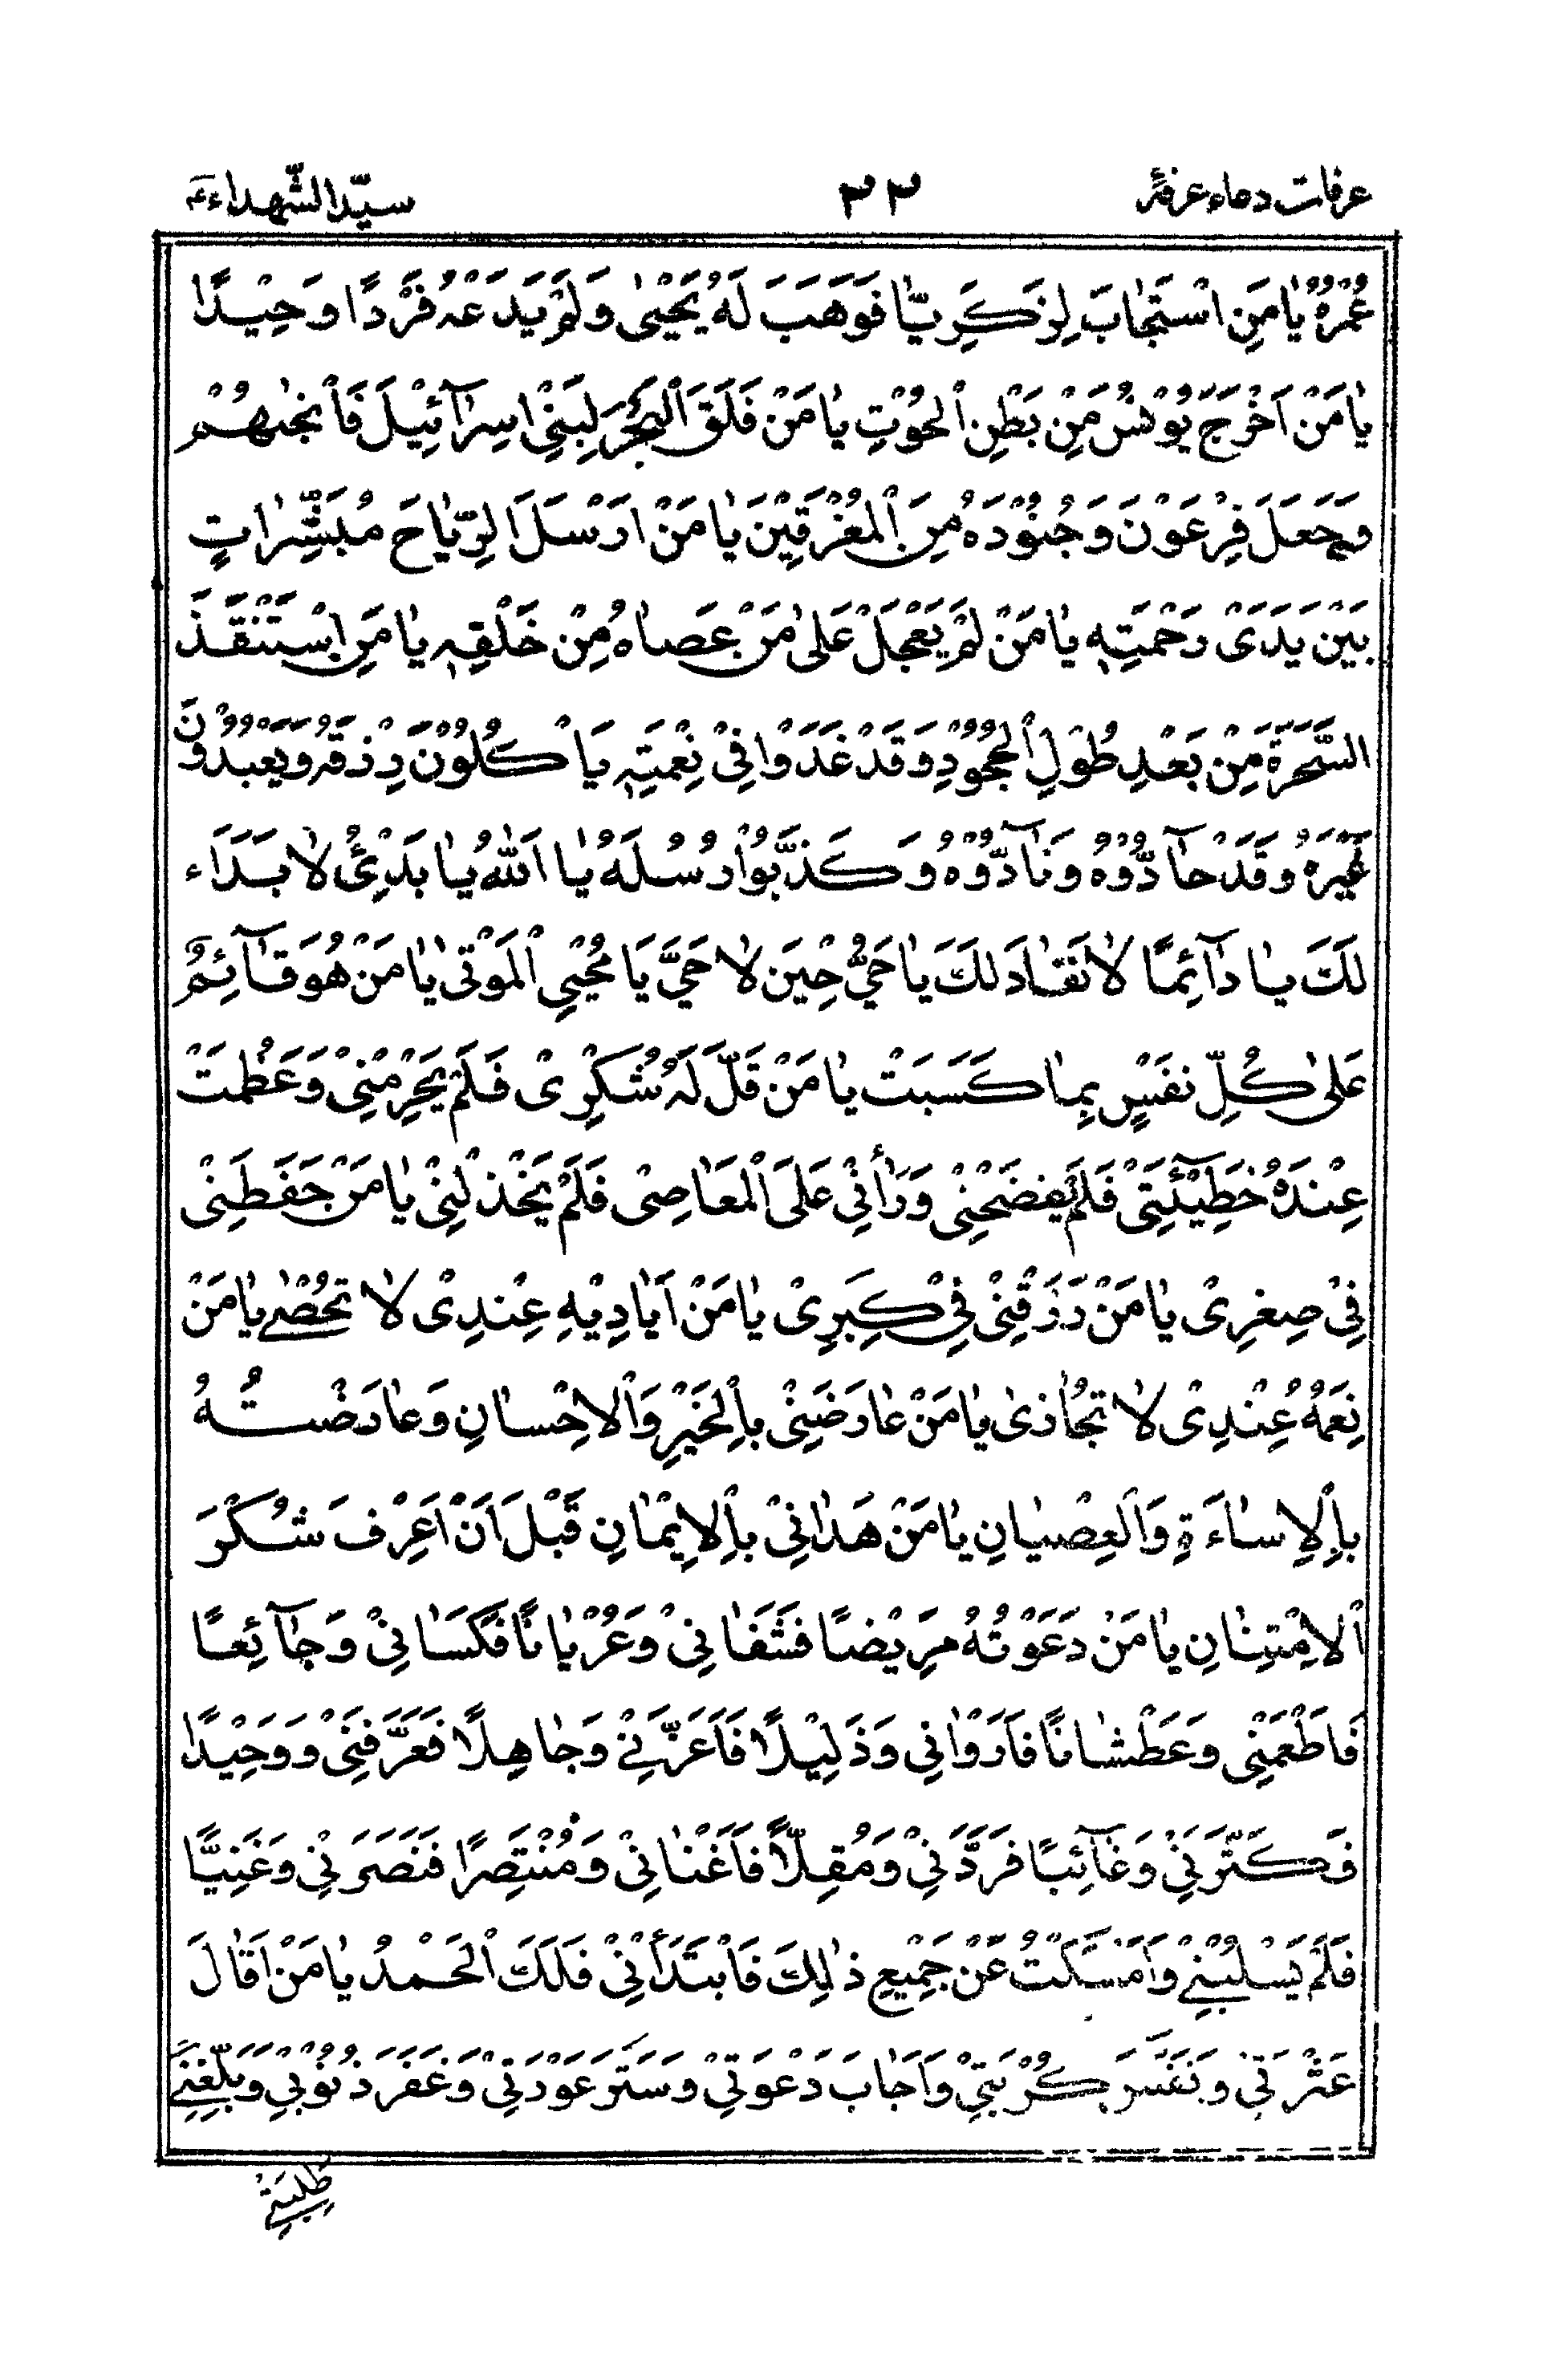 عرفات دعاء عرفهٔ ٣٣ سيّد الشّهداء ع
عُمْرُهُ يٰا مَنِ اسْتَجٰابَ لِزَكَرِيّٰا فَوَهَبَ لَهُ يَحْيىٰ وَلَمْ يَدَعْهُ فَرْدًا وَحِيْدًا
يٰا مَنْ اَخْرَجَ يُوْنُسَ مِنْ بَطْنِ الْحُوْتِ يٰا مَنْ فَلَقَ الْبَحْرَ لِبَنِيْ اِسرٰآئِيْلَ فَاَنْجٰهُمْ
وَجَعَلَ فِرْعَوْنَ وَجُنُوْدَهُ مِنَ الْمُغْرَقِيْنَ يٰا مَنْ اَرْسَلَ الرِّيٰاحَ مُبَشِّرٰاتٍ
بَيْنَ يَدَىْ رَحْمَتِهٖ يٰا مَنْ لَمْ يَعْجَلْ عَلىٰ مَنْ عَصٰاهُ مِنْ خَلْقِهٖ يٰا مَنِ اسْتَنْقَذَ
السَّحَرَةَ مِنْ بَعْدِ طُوْلِ الْجُحُوْدِ وَقَدْ غَدَوْا فِيْ نِعْمَتِهٖ يَاْكُلُوْنَ رِزْقَهُ وَيَعْبُدُوْنَ
غَيْرَهُ وَقَدْ حٰآدُّوْهُ وَنٰآدُّوْهُ وَكَذَّبُوْا رُسُلَهُ يٰا اَللّٰهُ يٰا بَدِئُ لٰا بَدَاء
لَكَ يٰا دٰآئِمًا لٰا نَفٰادَ لَكَ يٰا حَيُّ حِيْنَ لٰا حَيَّ يَا مُحْيِيَ الْمَوْتىٰ يٰا مَنْ هُوَ قٰآئِمٌ
عَلىٰ كُلِّ نَفْسٍ بِمٰا كَسَبَتْ يٰا مَنْ قَلَّ لَهُ شُكْرِىْ فَلَمْ يَحْرِمْنِيْ وَعَظُمَتْ
عِنْدَهُ خَطِيْٓئَتِىْ فَلَمْ يَفْضَحْنِىْ وَرَأٰنِيْ عَلَى الْمَعٰاصِىْ فَلَمْ يَخْذُلْنِىْ يٰا مَنْ حَفَظَنِىْ
فِيْ صِغَرِىْ يٰا مَنْ رَزَقَنِىْ فِيْ كِبَرِىْ يٰا مَنْ اَيٰادِيْهِ عِنْدِىْ لٰا تُحْصٰى يٰا مَنْ
نِعَمُهُ عِنْدِىْ لٰا تُجٰازىٰ يٰا مَنْ عٰارَضَنِىْ بِالْخَيْرِ وَالْاِحْسٰانِ وَعٰارَضْتُهُ
بِالْاِسٰاءَةِ وَالْعِصْيٰانِ يٰا مَنْ هَدٰانِىْ بِالْاِيْمٰانِ قَبْلَ اَنْ اَعْرِفَ شُكْرَ
الْاِمْتِنٰانِ يٰا مَنْ دَعَوْتُهُ مَرِيْضًا فَشَفٰانِىْ وَعُرْيٰانًا فَكَسٰانِىْ وَجٰآئِعًا
فَاَطْعَمَنِىْ وَعَطْشٰانًا فَاَرْوٰانِى وَذَلِيْلًا فَاَعَزَّنِىْ وَجٰاهِلًا فَعَرَّفَنِىْ وَوَحِيْدًا
فَكَثَّرَنِىْ وَغٰآئِبًا فَرَدَّنِىْ وَمُقِلًّا فَاَغْنٰانِىْ وَمُنْتَصِرًا فَنَصَرَنِىْ وَغَنِيًّا
فَلَمْ يَسْلُبْنِىْ وَاَمْسَكْتُ عَنْ جَمِيْعِ ذٰلِكَ فَابْتَدَأَنِىْ فَلَكَ الْحَمْدُ يٰا مَنْ اَقٰالَ
عَثْرَتِىْ وَنَفَّسَ كُرْبَتِىْ وَاَجٰابَ دَعْوَتِىْ وَسَتَرَ عَوْرَتِىْ وَغَفَرَ ذُنُوْبِىْ وَبَلَّغَنِىْ
طَلِبَتِىْ